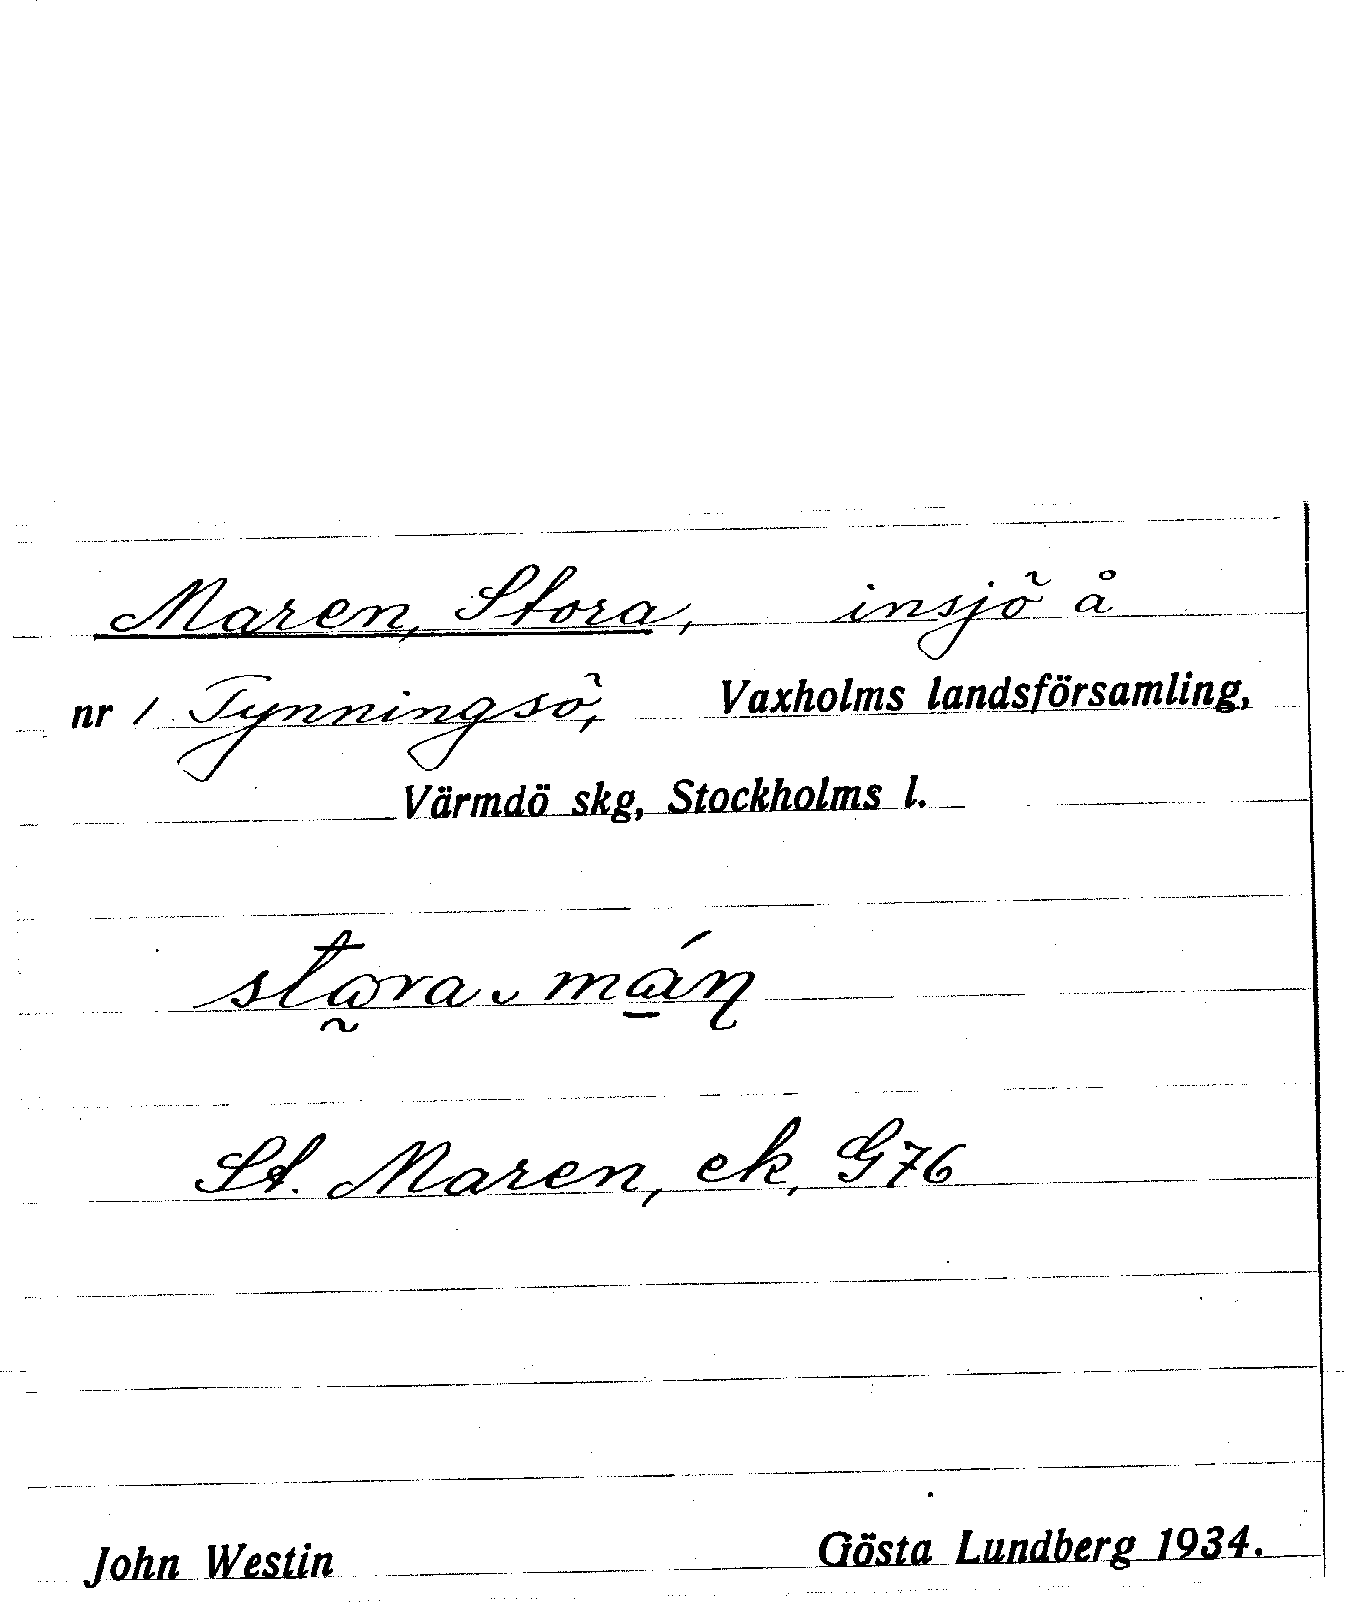 Maren, Stora, insjö å
nr 1 Tynningsö, Vaxholms landsförsamling,
Värmdö skg, Stockholms l.
St. Maren, ek, G76
John Westin Gösta Lundberg 1934.